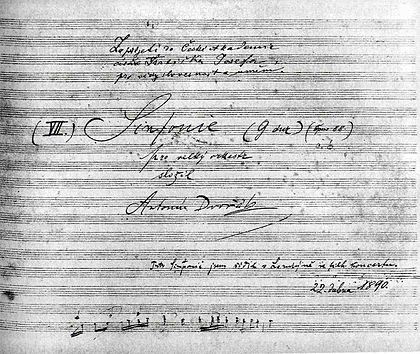 Za přijetí do České akademie
císaře Františka Josefa
pro vědy slovesnost a umění.
(VII.) Sinfonie (G dur) (Opus 88)
pro velký orkestr
složil
Antonín Dvořák
Sinfonii jsem řídil v Londýně ve concertu.
22. dubna 1890.